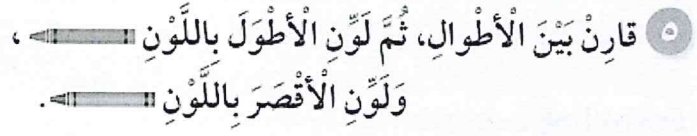 ٥ قارِنْ بَيْنَ الْأَطْوالِ، ثُمَّ لَوِّنِ الْأَطْوَلَ بِاللَّوْنِ ،
وَلَوِّنِ الْأَقْصَرَ بِاللَّوْنِ .